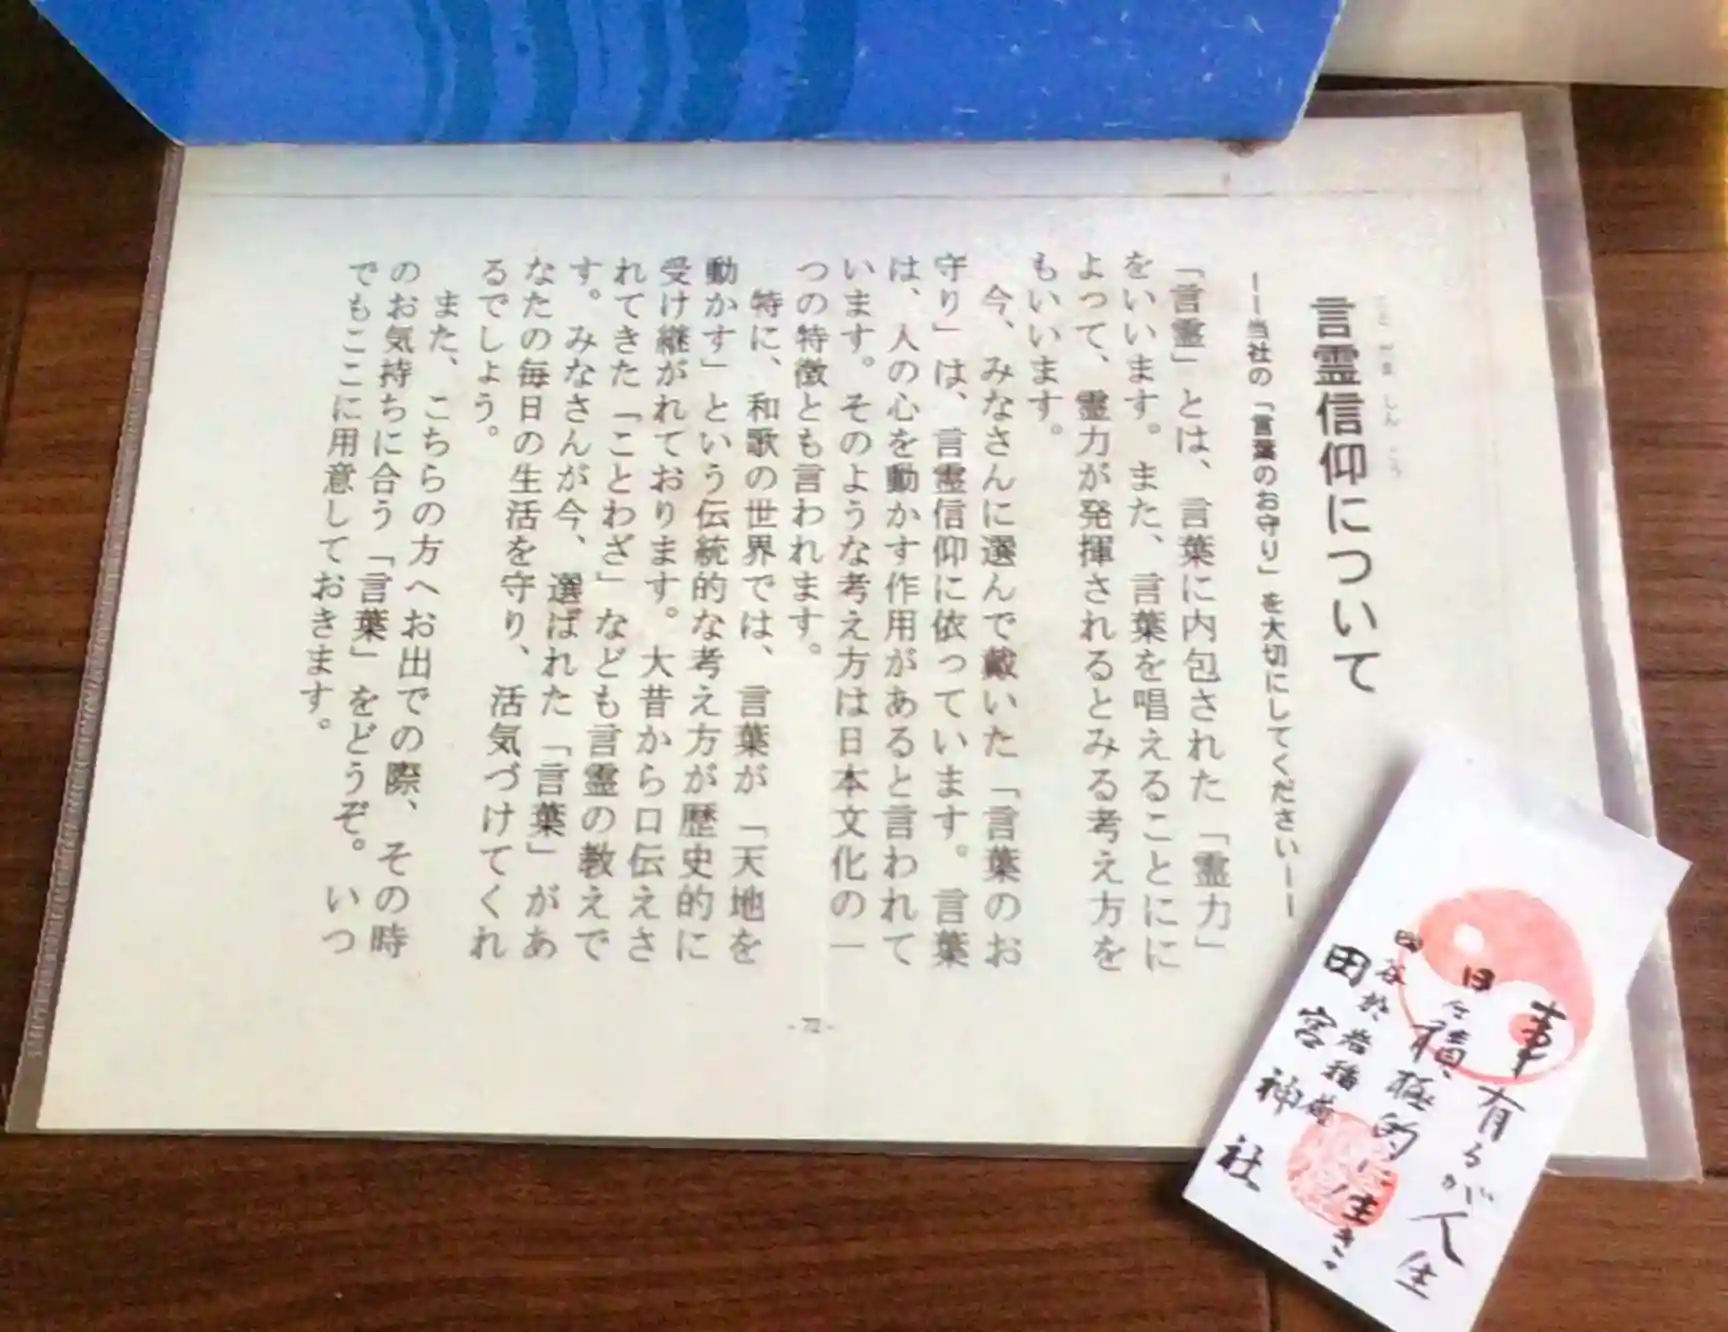 言霊信仰について
ことだましんこう
ーー当社の「言葉のお守り」を大切にしてくださいーー
「言霊」とは、言葉に内包された「霊力」
をいいます。また、言葉を唱えることにに
よって、霊力が発揮されるとみる考え方を
もいいます。
今、みなさんに選んで戴いた「言葉のお
守り」は、言霊信仰に依っています。言葉
は、人の心を動かす作用があると言われて
います。そのような考え方は日本文化の一
つの特徴とも言われます。
特に、和歌の世界では、言葉が「天地を
動かす」という伝統的な考え方が歴史的に
受け継がれております。大昔から口伝えさ
れてきた「ことわざ」なども言霊の教えで
す。みなさんが今、選ばれた「言葉」があ
なたの毎日の生活を守り、活気づけてくれ
るでしょう。
また、こちらの方へお出での際、その時
のお気持ちに合う「言葉」をどうぞ。いつ
でもここに用意しておきます。
- 72 -
事有るが人生
日々積極的に生きる
四谷於岩稲荷
田宮神社